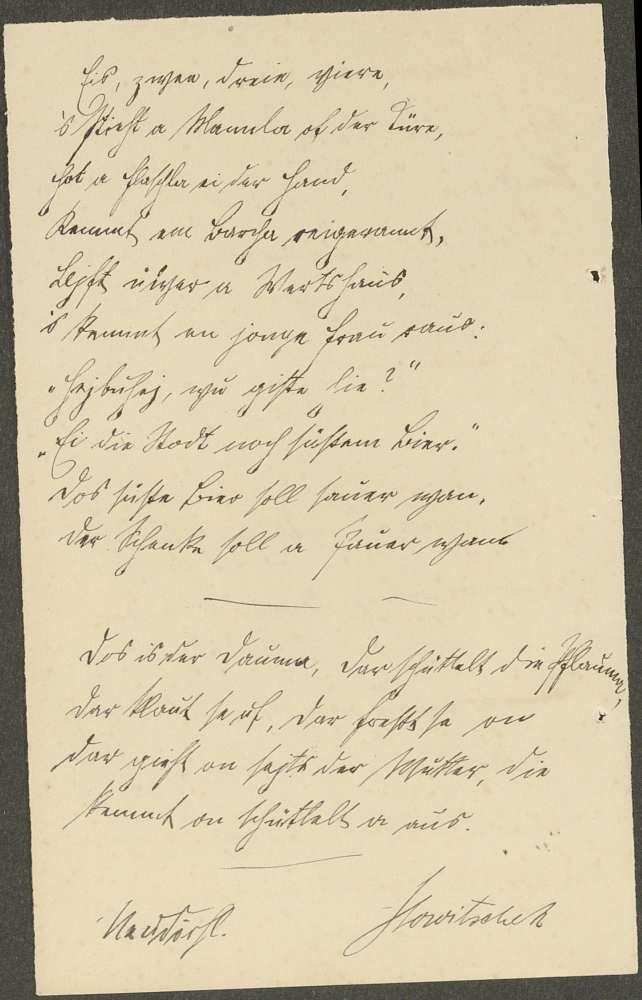 Eis, zwee, dreie, viere,
's stieht a Mannla of der Türe,
hot a Flaschla ei der Hand,
kemmt em Barcha reigerannt,
Lejft üwer a Wertshaus,
's kemmt en jonge Frau raus:
„Hejbuhej, wu gihste hie?"
„Ei die Stodt noch süßem Bier."
Dos süße Bier soll sauer wan,
der Schenke soll a Pauer wan.
Dos is der Dauma, dar schüttelt die Pflauma,
dar klaut se uf, dar freßt se on
dar gieht on sejts der Mutter, die
kemmt on schüttelt a aus.
Neudörfl. Howitschek